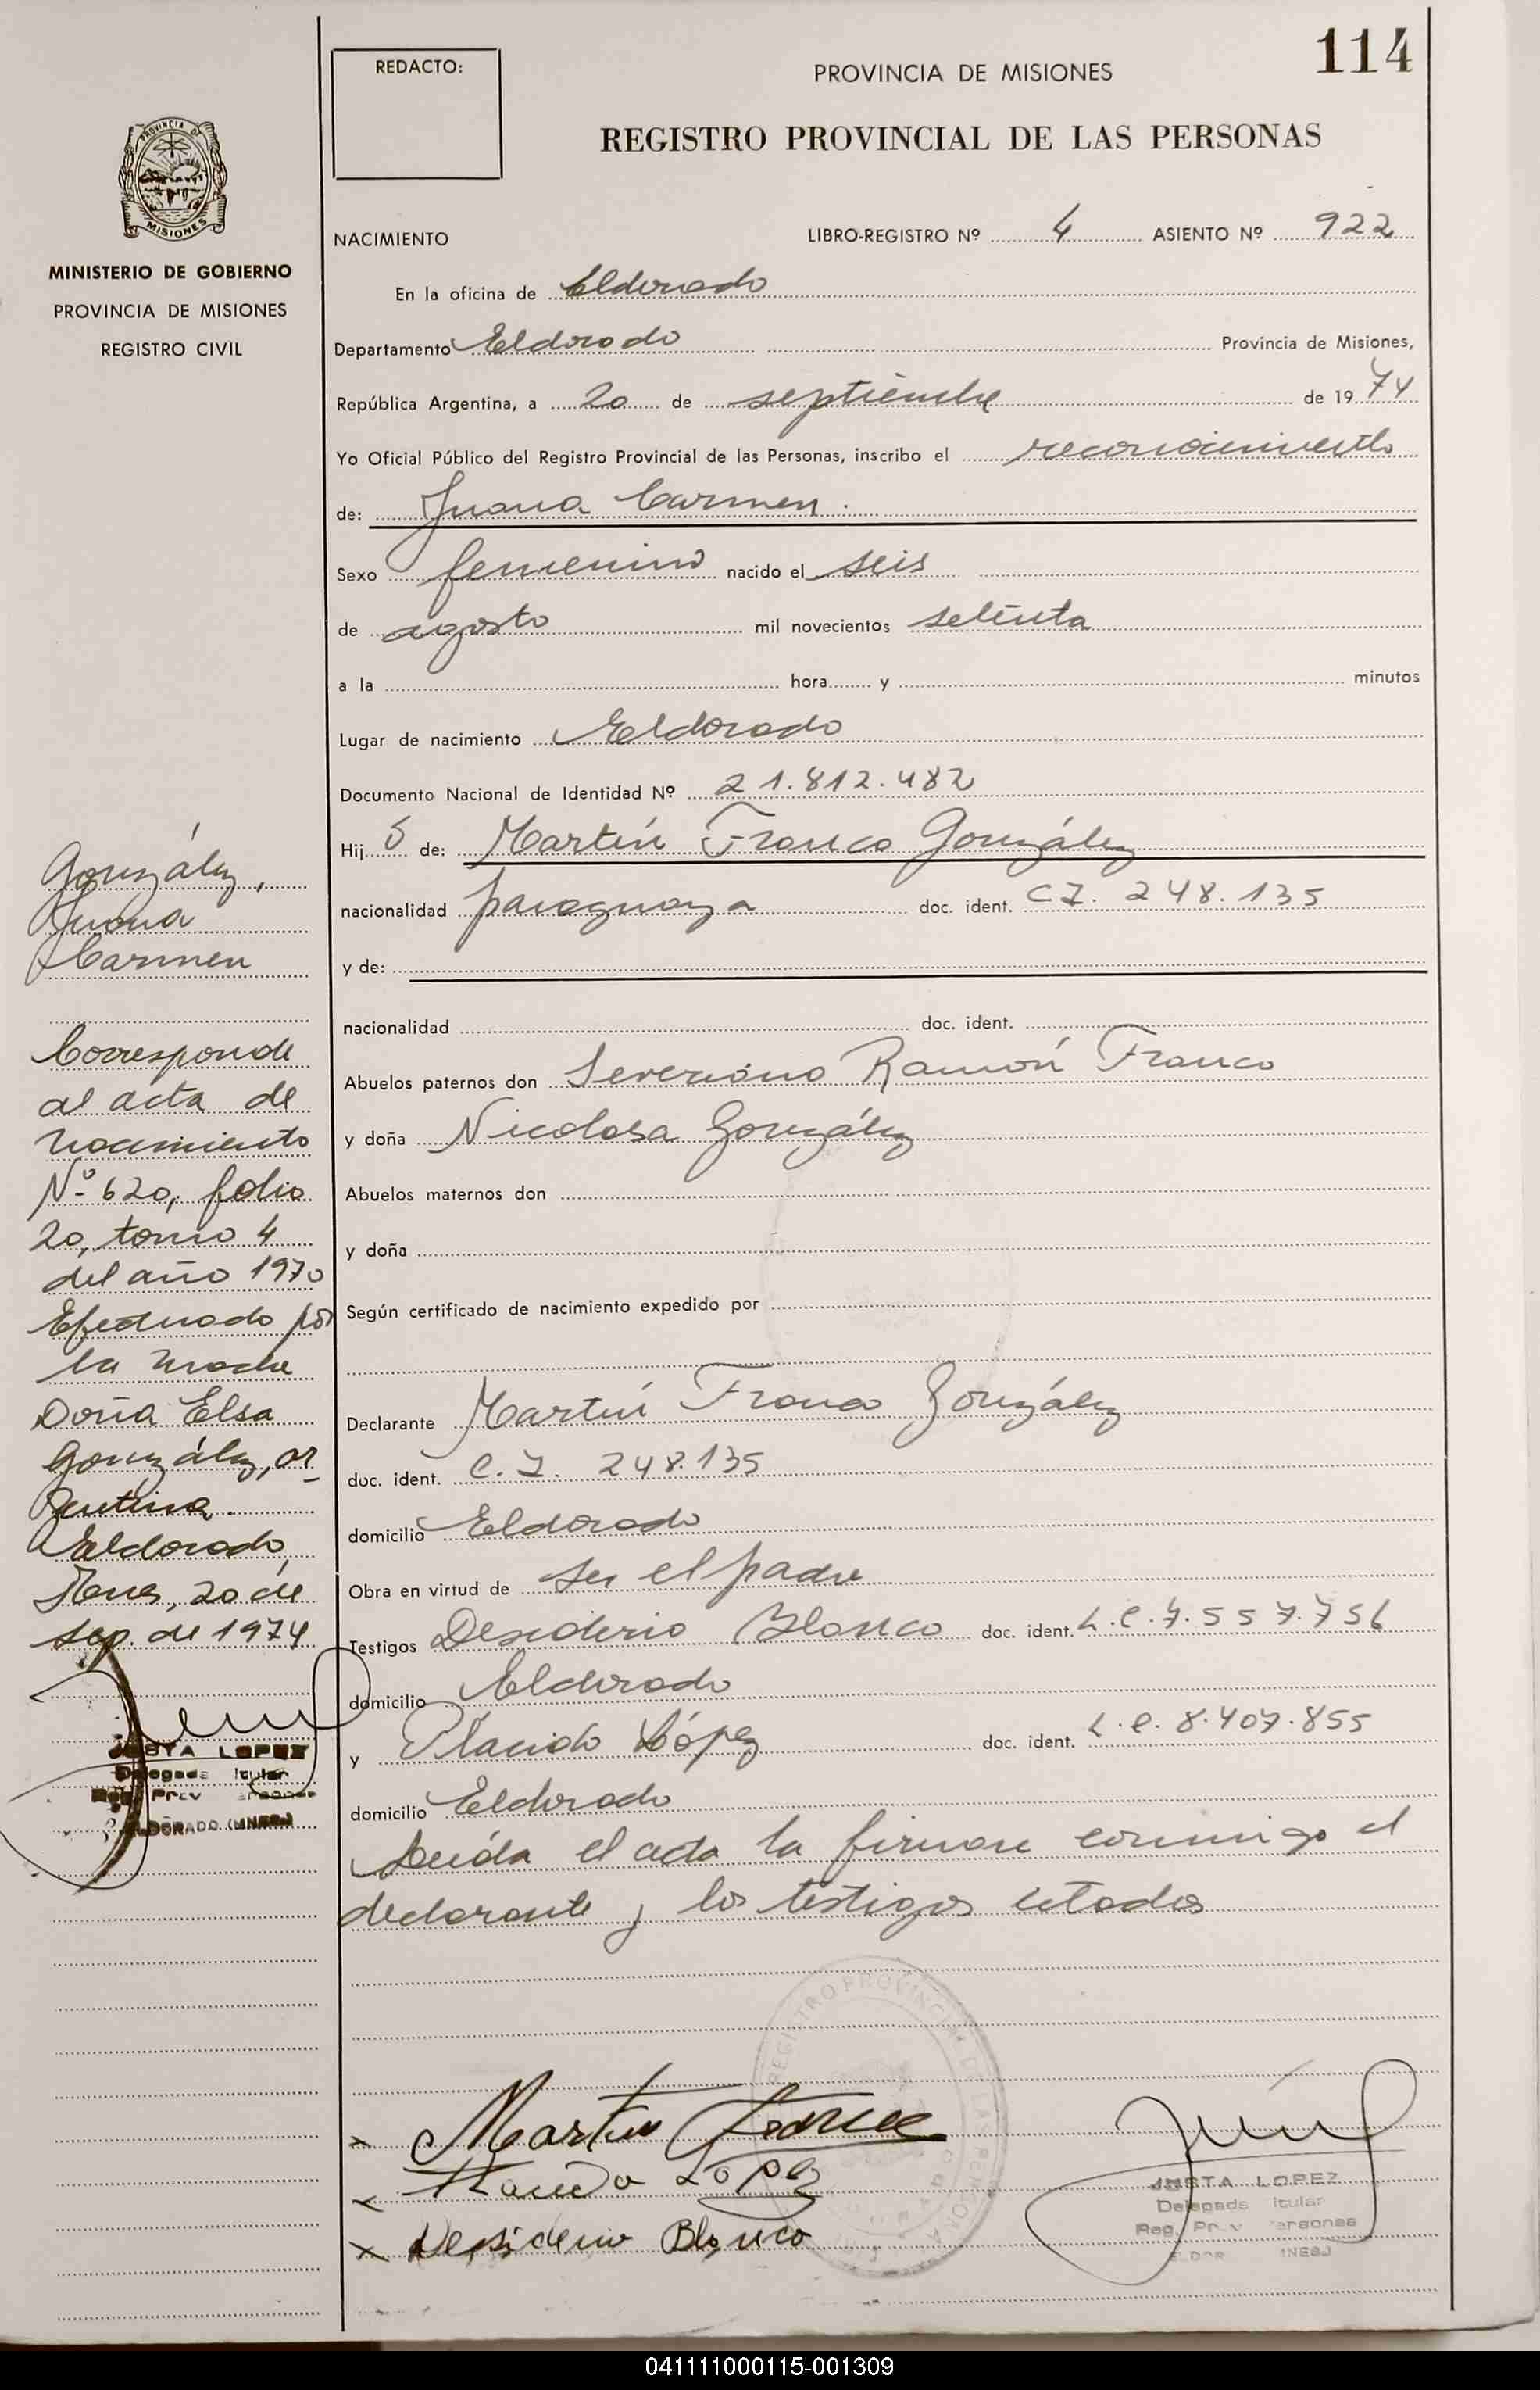 114
REDACTO:
PROVINCIA DE MISIONES
REGISTRO PROVINCIAL DE LAS PERSONAS
PROVINCIA DE
MISIONES
MINISTERIO DE GOBIERNO
PROVINCIA DE MISIONES
REGISTRO CIVIL
NACIMIENTO LIBRO-REGISTRO Nº 4 ASIENTO Nº 922
En la oficina de Eldorado
Departamento Eldorado Provincia de Misiones,
República Argentina, a 20 de septiembre de 1974
Yo Oficial Público del Registro Provincial de las Personas, inscribo el reconocimiento
de: Juana Carmen.
Sexo femenino nacido el seis
de agosto mil novecientos setenta
a la hora y minutos
Lugar de nacimiento Eldorado
Documento Nacional de Identidad Nº 21.812.482
Hij a de: Martín Franco González
nacionalidad paraguaya doc. ident. C.I. 248.135
y de:
nacionalidad doc. ident.
Abuelos paternos don Severiano Ramón Franco
y doña Nicolasa González
Abuelos maternos don
y doña
Según certificado de nacimiento expedido por
Declarante Martín Franco González
doc. ident. C.I. 248.135
domicilio Eldorado
Obra en virtud de ser el padre
Testigos Desiderio Blanco doc. ident. L.E. 7.557.756
domicilio Eldorado
y Plácido López doc. ident. L.E. 8.407.855
domicilio Eldorado
Leída el acta la firman conmigo el
declarante y los testigos citados
González,
Juana
Carmen
Corresponde
al acta de
nacimiento
Nº 620, folio
20, tomo 4
del año 1970
Efectuado por
la madre
Doña Elsa
González, ar-
gentina.
Eldorado,
Mnes, 20 de
sep. de 1974
JUSTA LOPEZ
Delegada Titular
Reg. Prov Personas
ELDORADO (MNES)
REGISTRO PROVINCIAL DE LAS PERSONAS
x Martin Franco
x Placido Lopez
x Desiderio Blanco
JUSTA LOPEZ
Delegada Titular
Reg. Prov Personas
041111000115-001309